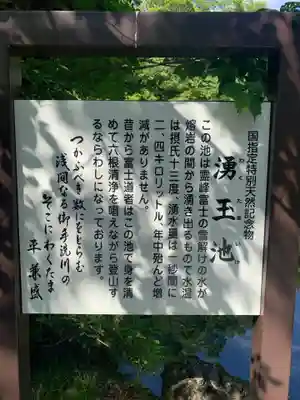 国指定特別天然記念物
湧玉池
わくたまいけ
この池は霊峰富士の雪解けの水が
熔岩の間から湧き出るもので水温
は摂氏十三度、湧水量は一秒間に
二、四キロリットル、年中殆んど増
減がありません。
昔から富士道者はこの池で身を清
めて六根清浄を唱えながら登山す
るならわしになっております。
つかふべき数にをとらむ
浅間なる御手洗川の
そこにわくたま
平兼盛